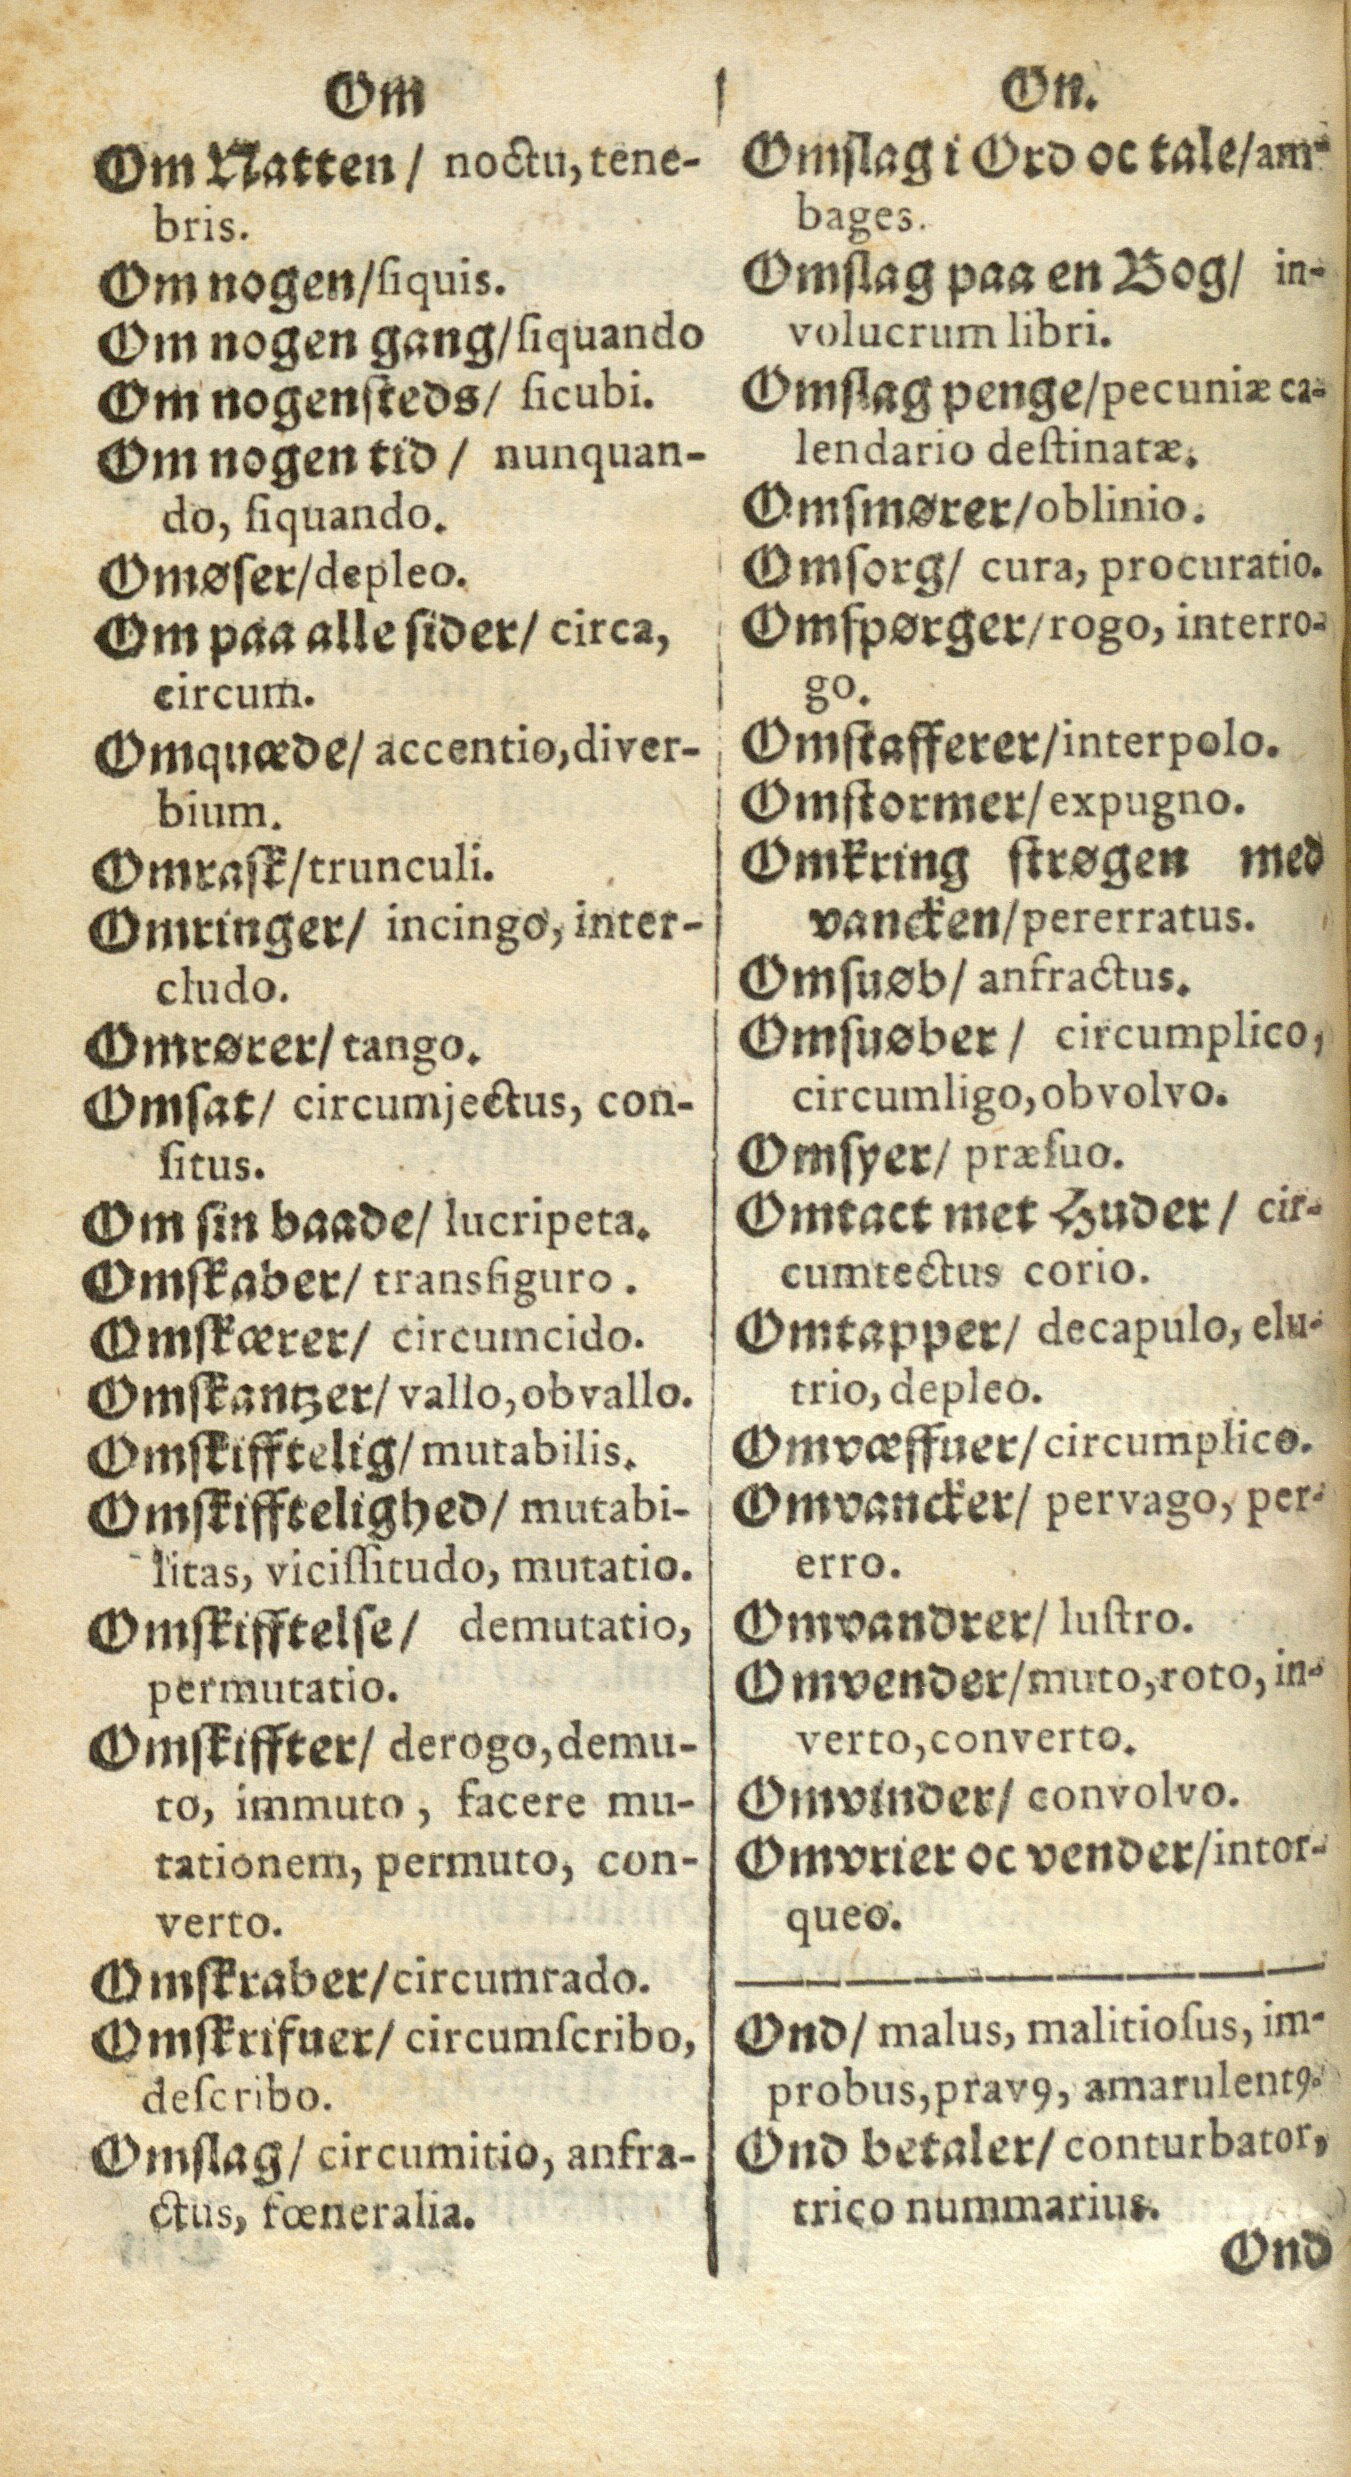 Om
Om Natten / noctu, tene-
bris.
Om nogen/ſiquis.
Om nogen gang/ſiquando
Om nogenſteds/ ſicubi.
Om nogen tid / nunquan-
do, ſiquando.
Omøſer/depleo.
Om paa alle ſider/ circa,
circum.
Omquæde/ accentio,diver-
bium.
Omraſk/trunculi.
Omringer/ incingo, inter-
cludo.
Omrører/ tango.
Omſat/ circumjectus, con-
ſitus.
Om ſin baade/ lucripeta.
Omſkaber/ transfiguro.
Omſkærer/ circumcido.
Omſkantzer/ vallo,obvallo.
Omſkifftelig/mutabilis.
Omſkifftelighed/ mutabi-
litas, viciſſitudo, mutatio.
Omſkifftelſe/ demutatio,
permutatio.
Omſkiffter/ derogo,demu-
to, immuto, facere mu-
tationem, permuto, con-
verto.
Omſkraber/circumrado.
Omſkrifuer/ circumſcribo,
deſcribo.
Omſlag/ circumitio, anfra-
ctus, fœneralia.
On.
Omſlag i Ord oc tale/am-
bages.
Omſlag paa en Bog/ in-
volucrum libri.
Omſlag penge/pecuniæ ca-
lendario deſtinatæ.
Omſmører/oblinio.
Omſorg/ cura, procuratio.
Omſpørger/rogo, interro-
go.
Omſtafferer/interpolo.
Omſtormer/expugno.
Omkring ſtrøgen med
vancken/pererratus.
Omſuøb/ anfractus.
Omſuøber / circumplico,
circumligo,obvolvo.
Omſyer/ præſuo.
Omtact met Huder / cir-
cumtectus corio.
Omtapper/ decapulo, elu-
trio, depleo.
Omvæffuer/circumplico.
Omvancker/ pervago, per-
erro.
Omvandrer/ luſtro.
Omvender/muto,roto, in-
verto,converto.
Omvinder/ convolvo.
Omvrier oc vender/intor-
queo.
Ond/ malus, malitioſus, im-
probus,pravꝯ, amarulentꝯ.
Ond betaler/ conturbator,
trico nummarius.
Ond